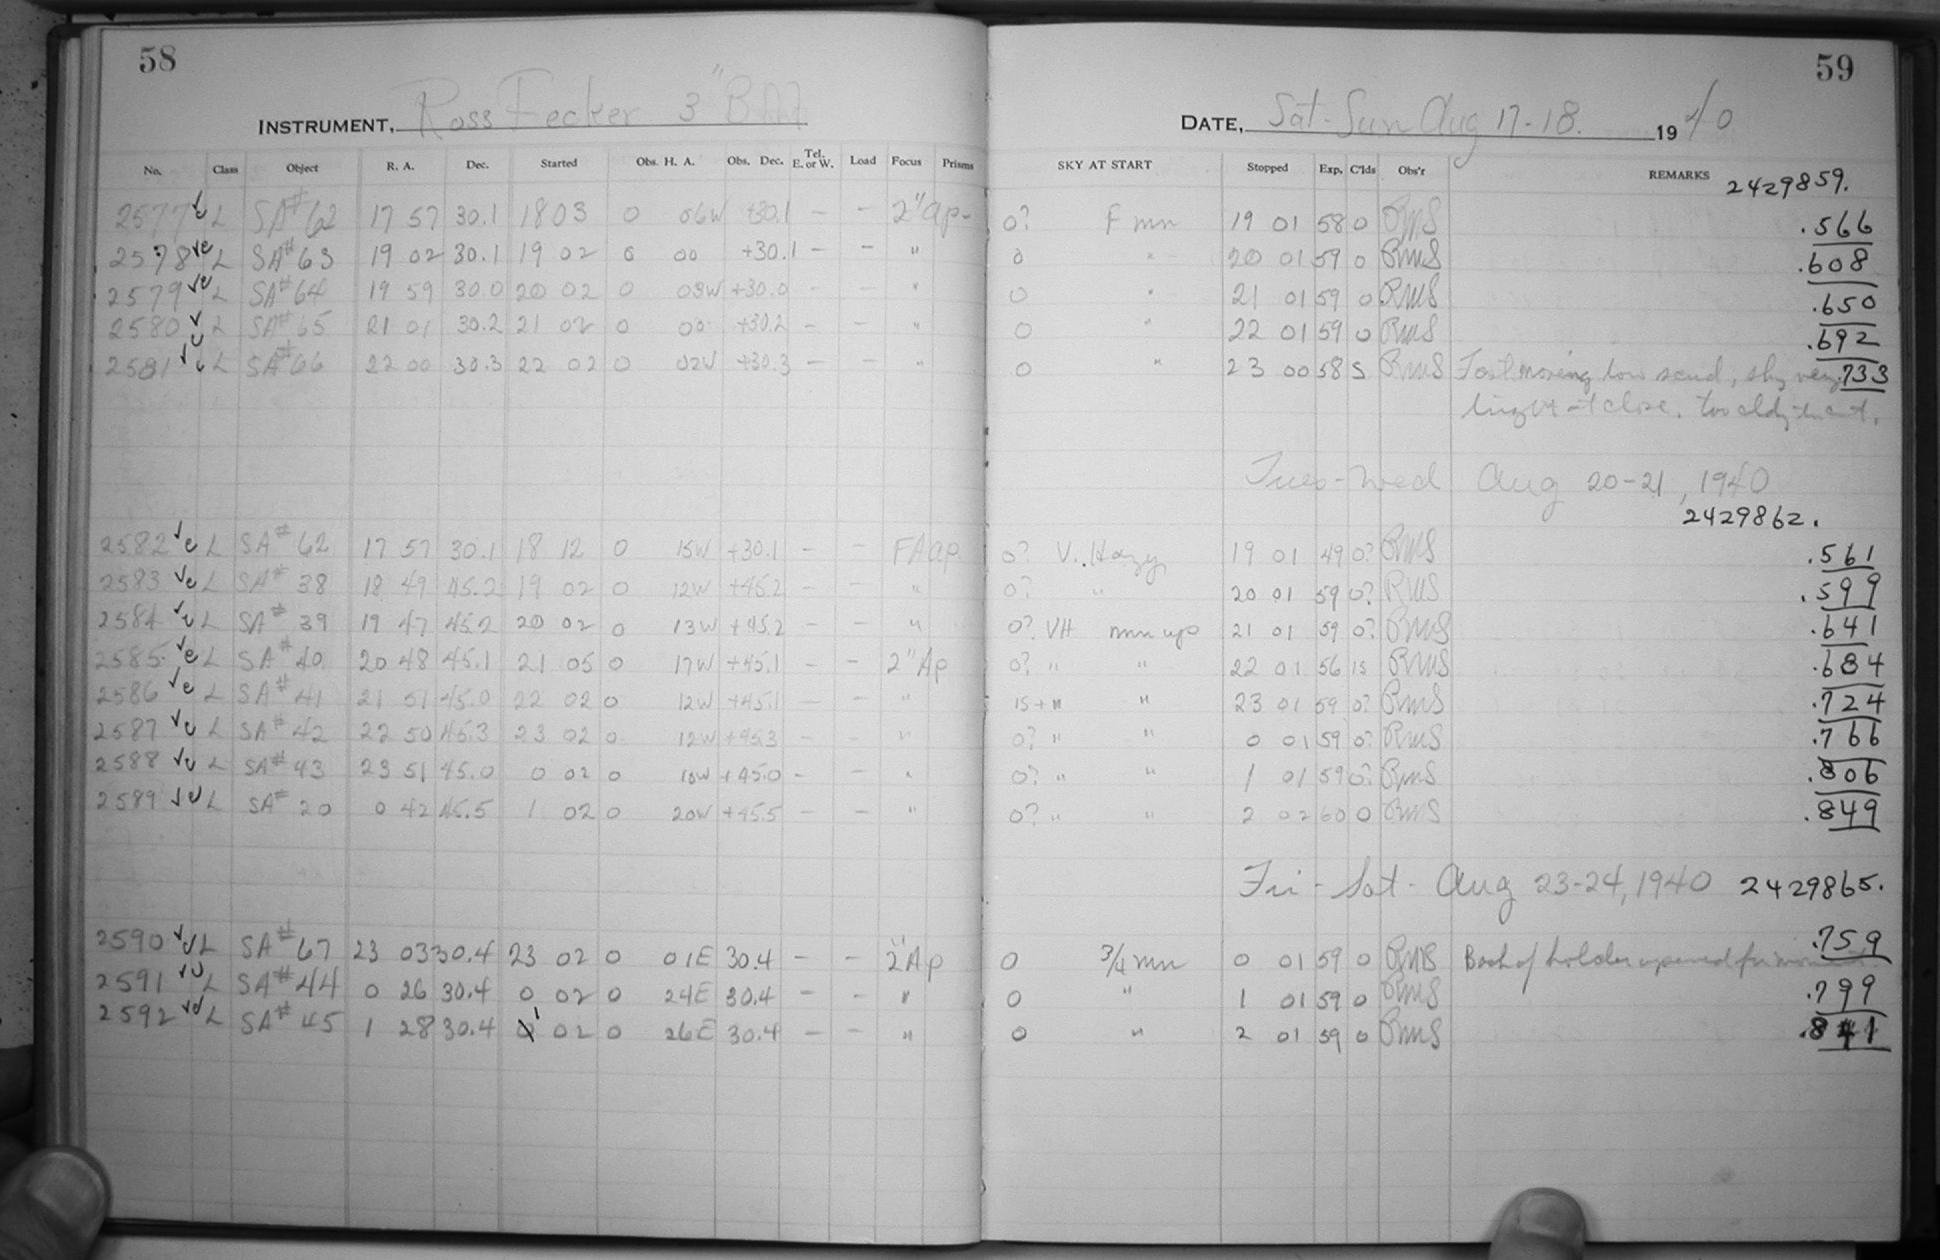 58
INSTRUMENT, Ross Fecker 3"
No. Class Object R. A. Dec. Started Obs. H. A. Obs. Dec. Tel. E. or W. Load Focus Prisms
2577 L SA#62 17 57 30.1 18 03 0 06W +30.1 — — 2"ap-
2578 L SA#63 19 02 30.1 19 02 0 00 +30.1 — — "
2579 L SA#64 19 59 30.0 20 02 0 03W +30.0 — — "
2580 L SA#65 21 01 30.2 21 02 0 00 +30.2 — — "
2581 L SA#66 22 00 30.3 22 02 0 02W +30.3 — — "
2582 L SA#62 17 57 30.1 18 12 0 15W +30.1 — — FAap
2583 L SA#38 18 49 45.2 19 02 0 12W +45.2 — — "
2584 L SA#39 19 47 45.2 20 02 0 13W +45.2 — — "
2585 L SA#40 20 48 45.1 21 05 0 17W +45.1 — — 2"Ap
2586 L SA#41 21 51 45.0 22 02 0 12W +45.1 — — "
2587 L SA#42 22 50 45.3 23 02 0 12W +45.3 — — "
2588 L SA#43 23 51 45.0 0 02 0 10W +45.0 — — "
2589 L SA#20 0 42 45.5 1 02 0 20W +45.5 — — "
2590 L SA#67 23 03 30.4 23 02 0 01E 30.4 — — 2"Ap
2591 L SA#44 0 26 30.4 0 02 0 24E 30.4 — — "
2592 L SA#45 1 28 30.4 1 02 0 26E 30.4 — — "
59
DATE, Sat-Sun Aug 17-18. 1940
SKY AT START Stopped Exp. C'lds Obs'r REMARKS 2429859.
0? F mn 19 01 58 0 RMS .566
0 " 20 01 59 0 RMS .608
0 " 21 01 59 0 RMS .650
0 " 22 01 59 0 RMS .692
0 " 23 00 58 S RMS Fast moving low scud, sky very .733
bright at close. too cldy
Tues-Wed Aug 20-21, 1940
2429862.
0? V. Hazy 19 01 49 0? RMS .561
0? " 20 01 59 0? RMS .599
0? VH mn up 21 01 59 0? RMS .641
0? " " 22 01 56 1S RMS .684
1S+" " 23 01 59 0? RMS .724
0? " " 0 01 59 0? RMS .766
0? " " 1 01 59 0? RMS .806
0? " " 2 02 60 0 RMS .849
Fri-Sat- Aug 23-24, 1940 2429865.
0 3/4 mn 0 01 59 0 RMS Back of holder opened for .759
0 " 1 01 59 0 RMS .799
0 " 2 01 59 0 RMS .841